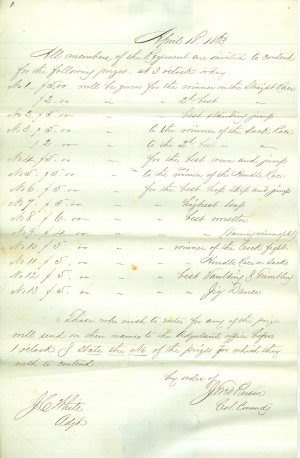 April 18, 1863
All members of the Regiment are invited to contend
for the following prizes, at 3 oclock today.
No 1. $5.00 will be given for the winner in the Straight Race
$2 00 " " " 2d best "
No 2. $5 00 " " best standing jump
No 3. $5. 00 " " to the winner of the Sack Race
$2 00 " " to the 2d best in " "
No 4. $5. 00 " " for the best run and jump
No 5. $5. 00 " " to the winner of the Hurdle Race
No 6. $5. 00 " " for the best hop skip and jump
No 7. $5. 00 " " highest leap
No 8 $6. 00 " " best wrestler
No 9
No 10. $5. 00 " " winner of the Cock fight
No 11. $5. " " Hurdle Race in Sacks
No 12 $5. " " best Vaulting & Tumbling
No 13. $5. " " Jig Dance
Those who wish to enter for any of the prizes
will send in their names to the Adjutants office before
1 oclock & State the No of the prizes for which they
wish to contend.
by order of
J C White
Adjt
Col. Commdg